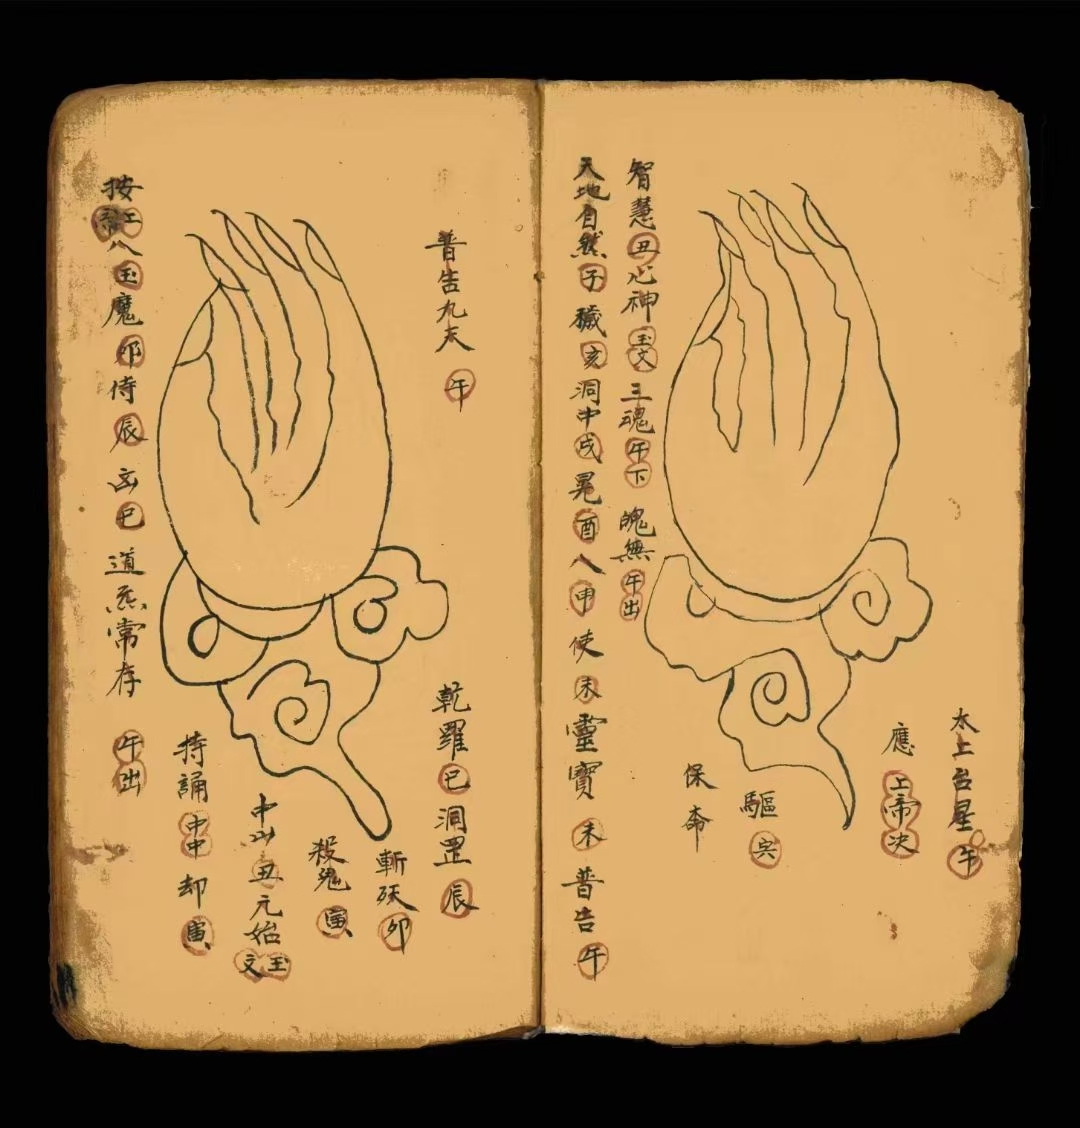 太上台星午
應上帝决
驅
保命
智慧丑心神玉文三魂午下魄無午出
天地自然子穢亥洞中戌晃酉八申使未靈寶未普告午
普告九天午
乾羅巳洞罡辰
斬妖卯
殺鬼寅
中山丑元始玉文
持誦中中却寅
按八玉魔卯侍辰巳道炁常存午出